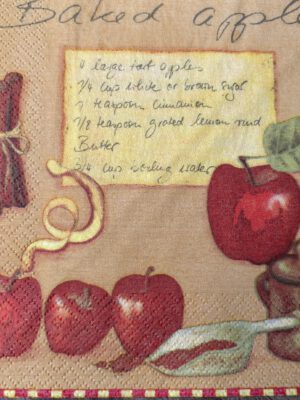 Baked apple
4 large tart apples
3/4 cup white or brown sugar
1 teaspoon cinnamon
1/8 teaspoon grated lemon rind
Butter
3/4 cup boiling water